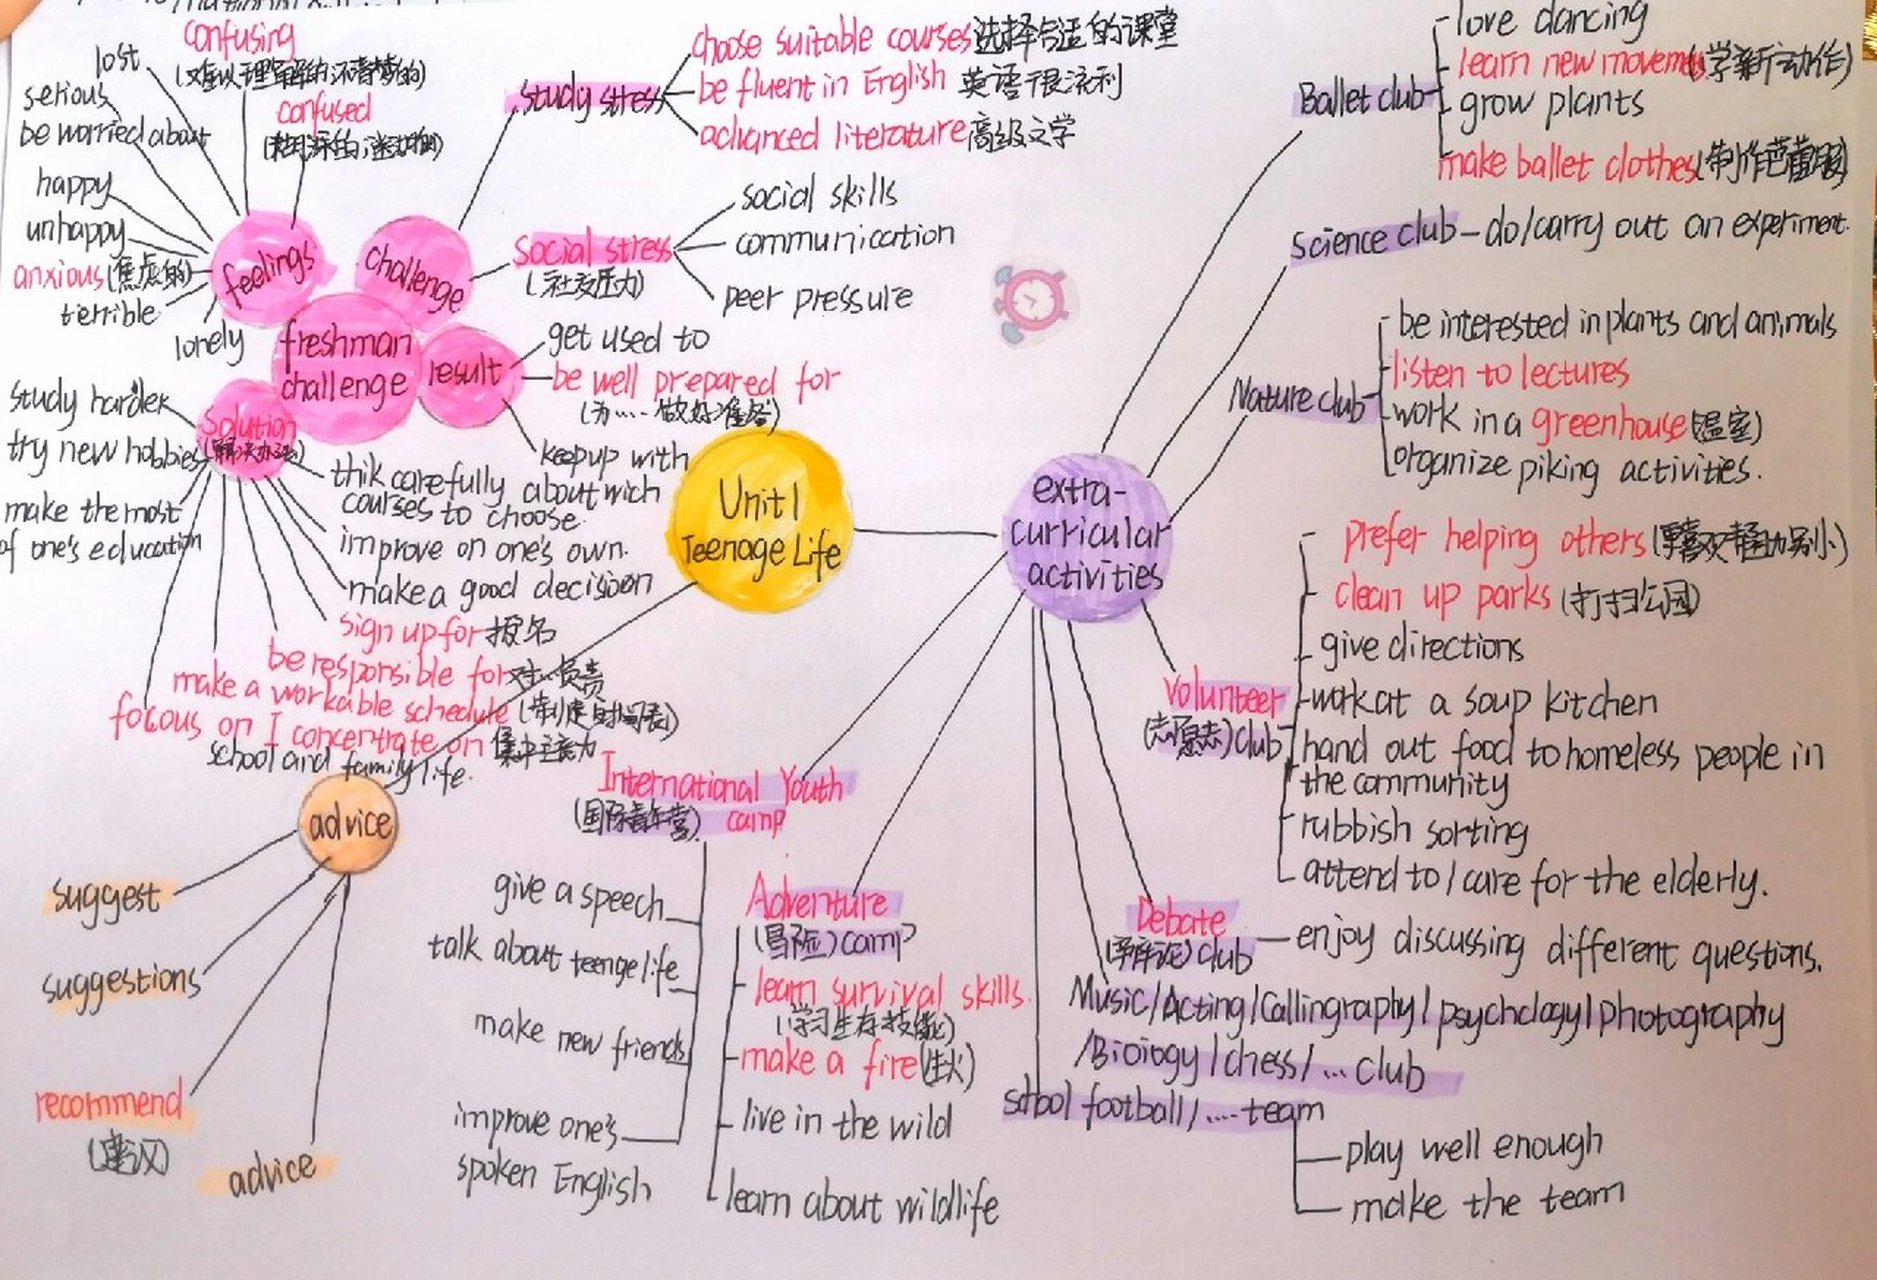 confusing
lost
serious
confused
be worried about
happy
unhappy
anxious(焦虑的)
terrible
lonely
feelings
challenge
freshman
challenge
result
study stress
choose suitable courses 选择合适的课堂
be fluent in English 英语很流利
advanced literature 高级文学
social stress
(社交压力)
social skills
communication
peer pressure
get used to
be well prepared for
(为……做好准备)
keep up with
solution
(解决办法)
study harder
try new hobbies
make the most
of one's education
thik carefully about wich
courses to choose.
improve on one's own.
make a good decision
sign up for 报名
be responsible for 对…负责
make a workable schedule
focous on I concentrate on 集中注意力
school and family life.
Unit 1
Teenage Life
advice
suggest
suggestions
recommend
(建议)
advice
extra-
curricular
activities
Ballet club
love dancing
learn new movements(学新动作)
grow plants
make ballet clothes(制作芭蕾服)
Science club - do/carry out an experiment.
Nature club
be interested in plants and animals
listen to lectures
work in a greenhouse(温室)
organize piking activities.
Volunteer
club
prefer helping others
clean up parks (打扫公园)
give directions
work at a soup kitchen
hand out food to homeless people in
the community
rubbish sorting
attend to/care for the elderly.
Debate
club
enjoy discussing different questions.
Music/Acting/Callingraphy/psychology/photography
/Bioiogy/chess/...club
school football/....team
play well enough
make the team
International Youth
(国际青年营) camp
give a speech
talk about teenge life
make new friends
improve one's
spoken English
Adventure
(冒险)camp
learn survival skills.
(学习生存技能)
make a fire(生火)
live in the wild
learn about wildlife